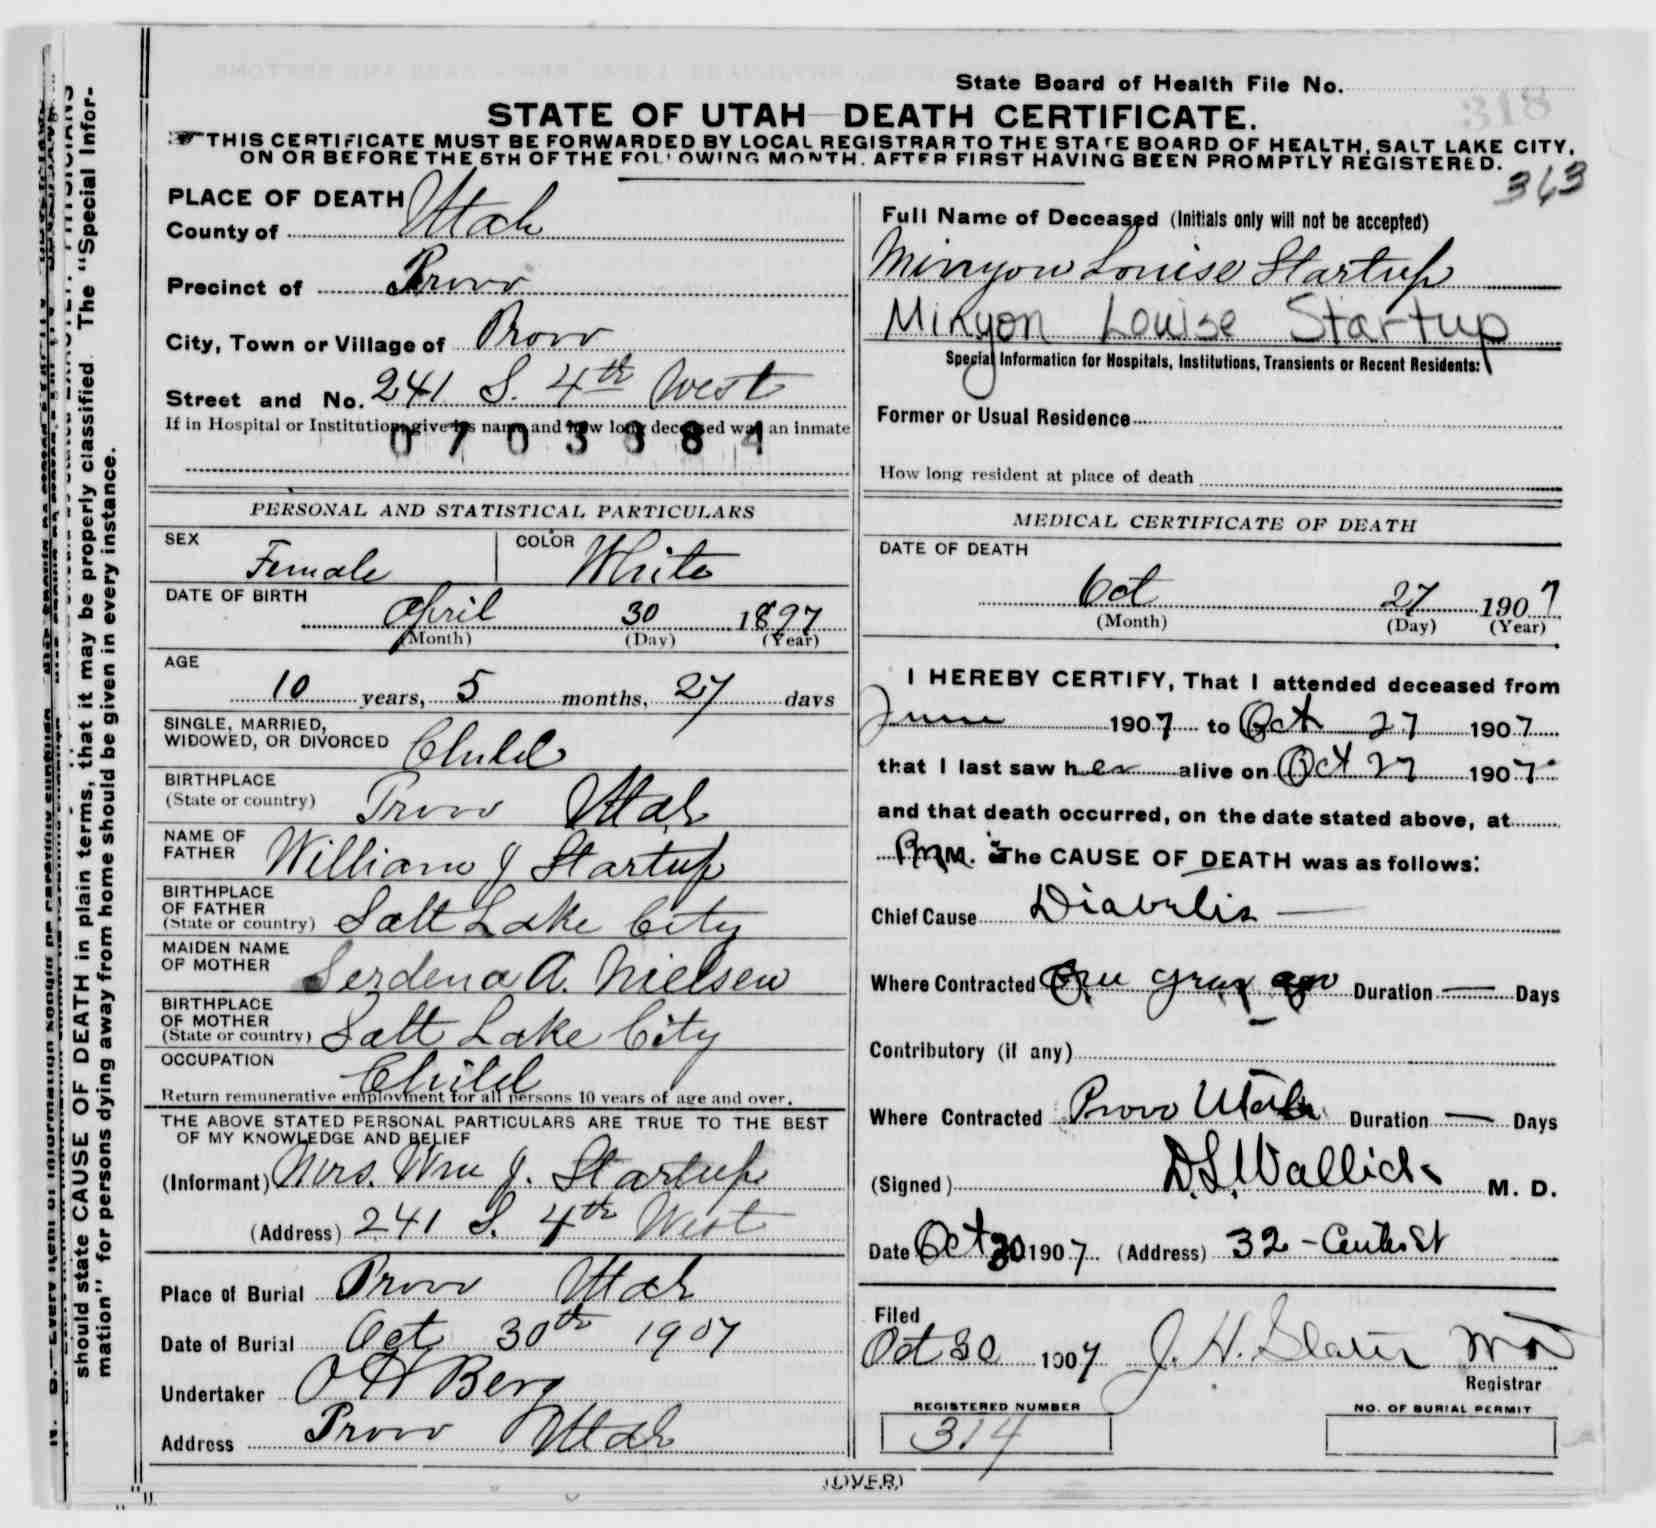 State Board of Health File No.
318
STATE OF UTAH DEATH CERTIFICATE.
THIS CERTIFICATE MUST BE FORWARDED BY LOCAL REGISTRAR TO THE STATE BOARD OF HEALTH, SALT LAKE CITY,
ON OR BEFORE THE 5TH OF THE FOLLOWING MONTH, AFTER FIRST HAVING BEEN PROMPTLY REGISTERED.
363
PLACE OF DEATH
County of Utah
Precinct of Provo
City, Town or Village of Provo
Street and No. 241 S. 4th West
If in Hospital or Institution, give its name and how long deceased was an inmate
PERSONAL AND STATISTICAL PARTICULARS
SEX Female COLOR White
DATE OF BIRTH
April 30 1897
(Month) (Day) (Year)
AGE
10 years, 5 months, 27 days
SINGLE, MARRIED,
WIDOWED, OR DIVORCED Child
BIRTHPLACE
(State or country) Provo Utah
NAME OF
FATHER William J Startup
BIRTHPLACE
OF FATHER
(State or country) Salt Lake City
MAIDEN NAME
OF MOTHER Serdena A. Nielsen
BIRTHPLACE
OF MOTHER
(State or country) Salt Lake City
OCCUPATION
Child
Return remunerative employment for all persons 10 years of age and over.
THE ABOVE STATED PERSONAL PARTICULARS ARE TRUE TO THE BEST
OF MY KNOWLEDGE AND BELIEF
(Informant) Mrs. Wm J. Startup
(Address) 241 S. 4th West
Place of Burial Provo Utah
Date of Burial Oct 30th 1907
Undertaker O H Berg
Address Provo Utah
Full Name of Deceased (Initials only will not be accepted)
Minyon Louise Startup
Minyon Louise Startup
Special Information for Hospitals, Institutions, Transients or Recent Residents:
Former or Usual Residence
How long resident at place of death
MEDICAL CERTIFICATE OF DEATH
DATE OF DEATH
Oct 27 1907
(Month) (Day) (Year)
I HEREBY CERTIFY, That I attended deceased from
June 1907 to Oct 27 1907
that I last saw her alive on Oct 27 1907
and that death occurred, on the date stated above, at
M. The CAUSE OF DEATH was as follows:
Chief Cause Diabetis
Where Contracted ago Duration — Days
Contributory (if any)
Where Contracted Provo Utah Duration — Days
(Signed) D.S. Wallick M. D.
Date Oct 30 1907 (Address) 32 - Center St
Filed
Oct 30 1907 J. H. Slater MD
Registrar
REGISTERED NUMBER
314
NO. OF BURIAL PERMIT
(OVER)
should state CAUSE OF DEATH in plain terms, that it may be properly classified. The "Special Infor-
mation" for persons dying away from home should be given in every instance.